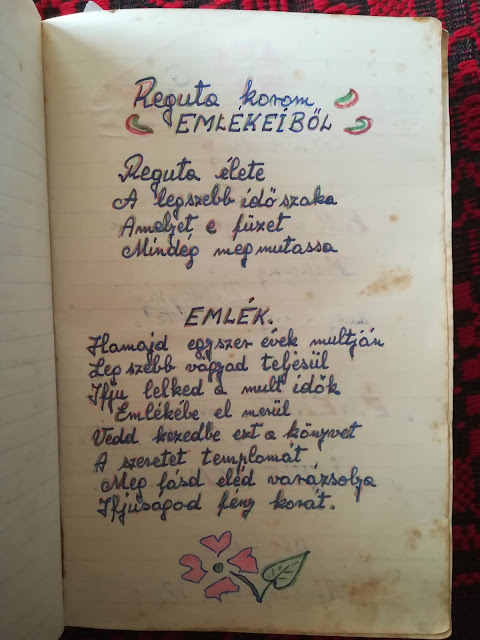 Reguta korom
EMLÉKEIBŐL
Reguta élete
A legszebb időszaka
Amelyet e füzet
Mindég megmutassa
EMLÉK.
Hamajd egyszer évek multján
Legszebb vágyad teljesül
Ifju lelked a mult idők
Emlékébe el merül
Vedd kezedbe ezt a könyvet
A szeretet templomát
Meg lásd eléd varázsolja
Ifjúságod fény korát.